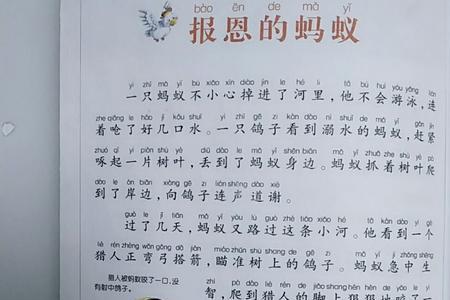 bào ēn de mǎ yǐ
报恩的蚂蚁
yì zhī mǎ yǐ bù xiǎo xīn diào jìn le hé lǐ tā bú huì yóu yǒng lián
一只蚂蚁不小心掉进了河里，他不会游泳，连
zhe qiāng le hǎo jǐ kǒu shuǐ yì zhī gē zi kàn dào nì shuǐ de mǎ yǐ gǎn jǐn
着呛了好几口水。一只鸽子看到溺水的蚂蚁，赶紧
zhuó qǐ yí piàn shù yè diū dào le mǎ yǐ shēn biān mǎ yǐ zhuā zhe shù yè pá
啄起一片树叶，丢到了蚂蚁身边。蚂蚁抓着树叶爬
dào le àn biān xiàng gē zi lián shēng dào xiè
到了岸边，向鸽子连声道谢。
guò le jǐ tiān mǎ yǐ yòu lù guò zhè tiáo xiǎo hé tā kàn dào yí gè
过了几天，蚂蚁又路过这条小河。他看到一个
liè rén zhèng wān gōng dā jiàn miáo zhǔn shù shàng de gē zi mǎ yǐ jí zhōng shēng
猎人正弯弓搭箭，瞄准树上的鸽子。蚂蚁急中生
猎人被蚂蚁咬了一口，没
有射中鸽子。
zhì pá dào liè rén de jiǎo shàng hěn hěn de
智，爬到猎人的脚上狠狠地